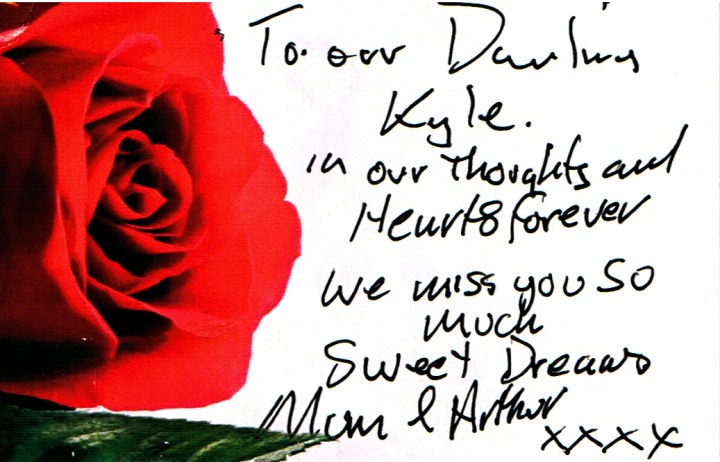 To our Darling
Kyle.
in our Thoughts and
Hearts forever
We miss you So
Much
Sweet Dreams
Mum & Arthur
xxxx